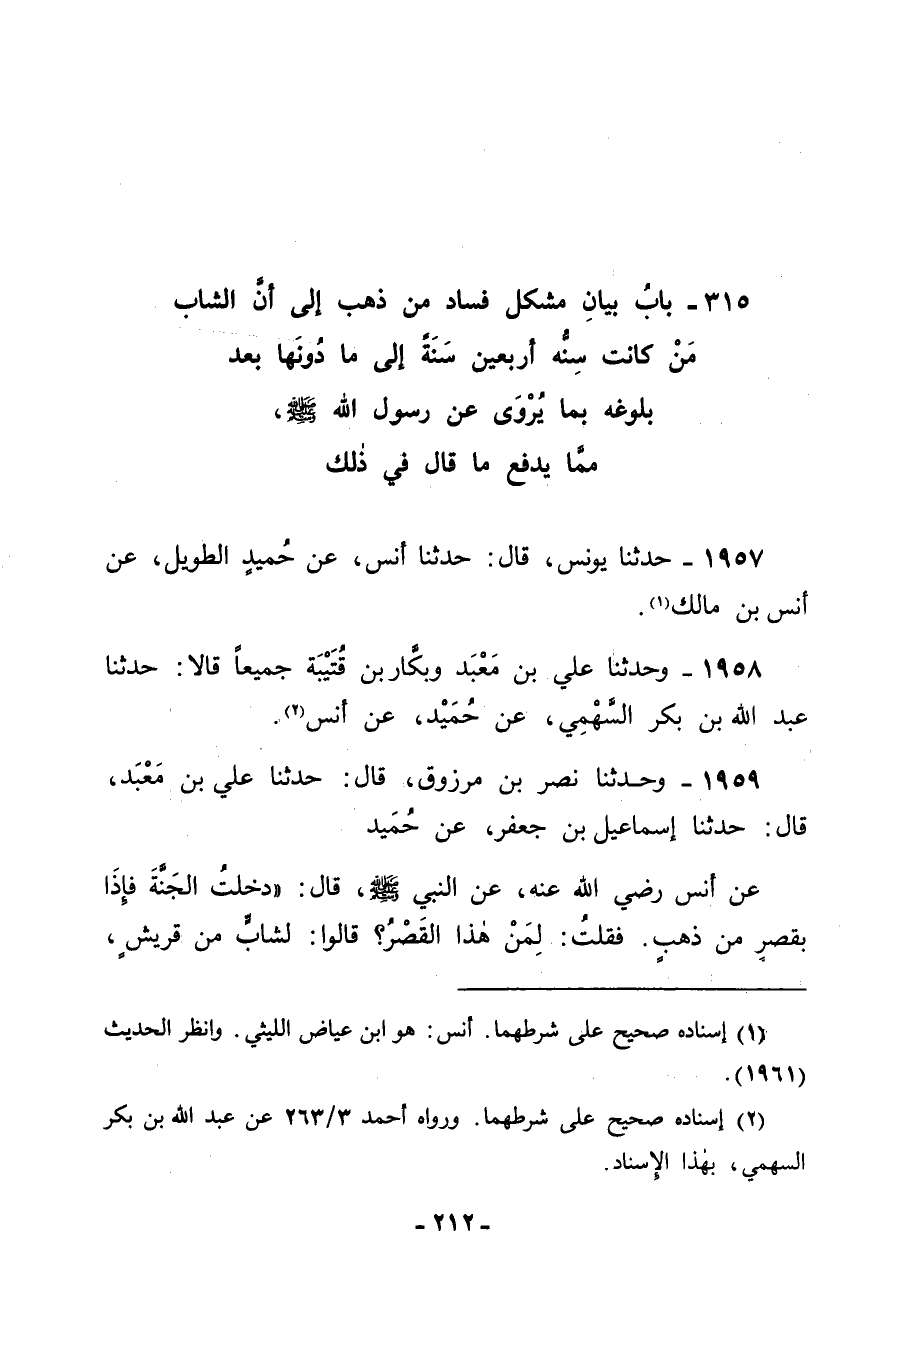 ٣١٥ - بابُ بيانِ مشكل فساد من ذهب إلى أنَّ الشاب
مَنْ كانت سِنُّه أربعين سَنَةً إلى ما دُونَها بعد
بلوغه بما يُرْوَى عن رسول الله ﷺ،
ممَّا يدفع ما قال في ذٰلك
١٩٥٧ - حدثنا يونس، قال: حدثنا أنس، عن حُميدٍ الطويل، عن
أنس بن مالك(١).
١٩٥٨ - وحدثنا علي بن مَعْبَد وبكَّار بن قُتَيْبَة جميعاً قالا: حدثنا
عبد الله بن بكر السَّهْمِي، عن حُمَيْد، عن أنس(٢).
١٩٥٩ - وحدثنا نصر بن مرزوق، قال: حدثنا علي بن مَعْبَد،
قال: حدثنا إسماعيل بن جعفر، عن حُمَيد
عن أنس رضي الله عنه، عن النبي ﷺ، قال: «دخلتُ الجَنَّةَ فإِذَا
بقصرٍ من ذهبٍ. فقلتُ: لِمَنْ هٰذا القَصْرُ؟ قالوا: لشابٍّ من قريشٍ،
(١) إسناده صحيح على شرطهما. أنس: هو ابن عياض الليثي. وانظر الحديث
(١٩٦١).
(٢) إسناده صحيح على شرطهما. ورواه أحمد ٢٦٣/٣ عن عبد الله بن بكر
السهمي، بهٰذا الإسناد.
- ٢١٢ -